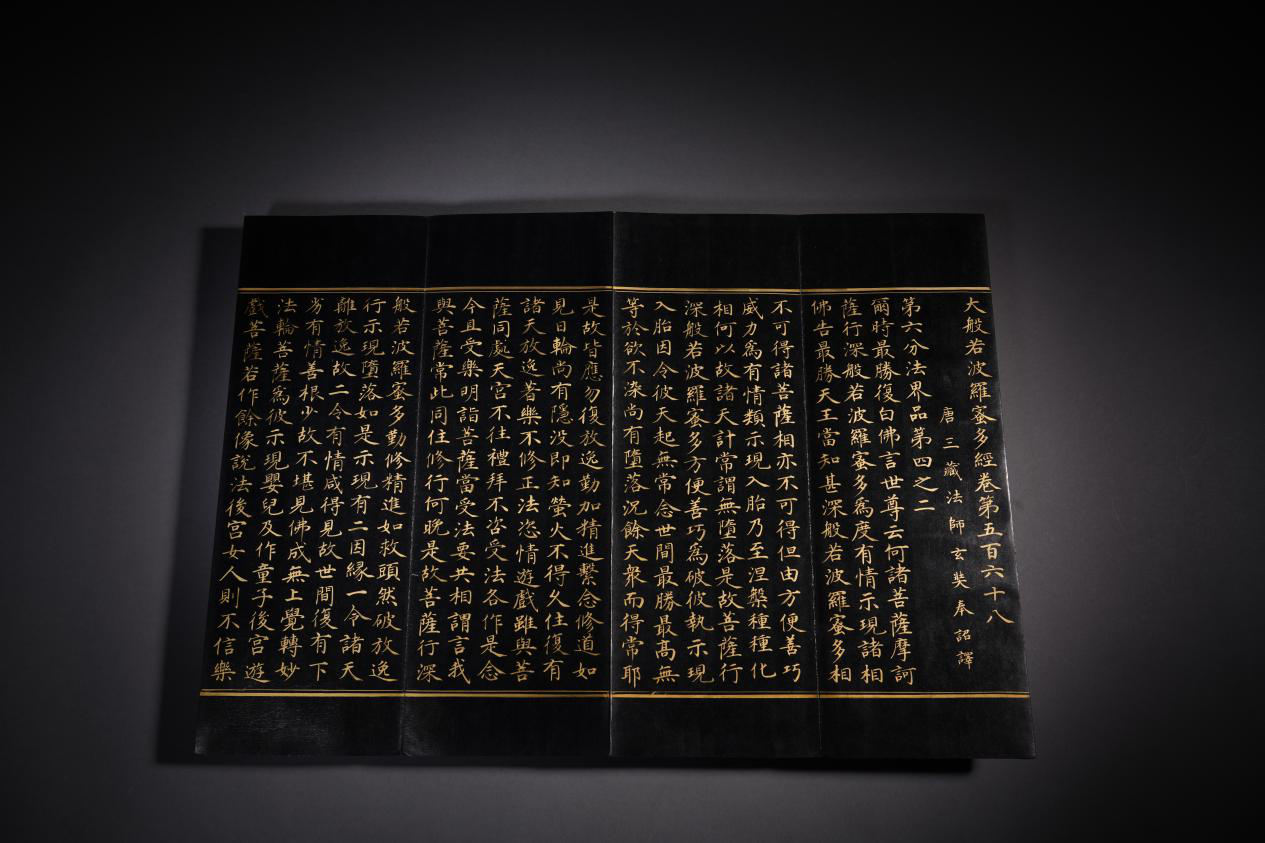 大般若波羅蜜多經卷第五百六十八
唐三藏法師玄奘奉詔譯
第六分法界品第四之二
爾時最勝復白佛言世尊云何諸菩薩摩訶
薩行深般若波羅蜜多為度有情示現諸相
佛告最勝天王當知甚深般若波羅蜜多相
不可得諸菩薩相亦不可得但由方便善巧
威力為有情類示現入胎乃至涅槃種種化
相何以故諸天計常謂無墮落是故菩薩行
深般若波羅蜜多方便善巧為破彼執示現
入胎因令彼天起無常念世間最勝最高無
等於欲不染尚有墮落況餘天眾而得常耶
是故皆應勿復放逸勤加精進繫念修道如
見日輪尚有隱没即知螢火不得久住復有
諸天放逸著樂不修正法恣情遊戲雖與菩
薩同處天宮不往禮拜不咨受法各作是念
今且受樂明詣菩薩當受法要共相謂言我
與菩薩常此同住修行何晚是故菩薩行深
般若波羅蜜多勤修精進如救頭然破放逸
行示現墮落如是示現有二因緣一令諸天
離放逸故二令有情咸得見故世間復有下
劣有情善根少故不堪見佛成無上覺轉妙
法輪菩薩為彼示現嬰兒及作童子後宮遊
戲菩薩若作餘像說法後宮女人則不信樂